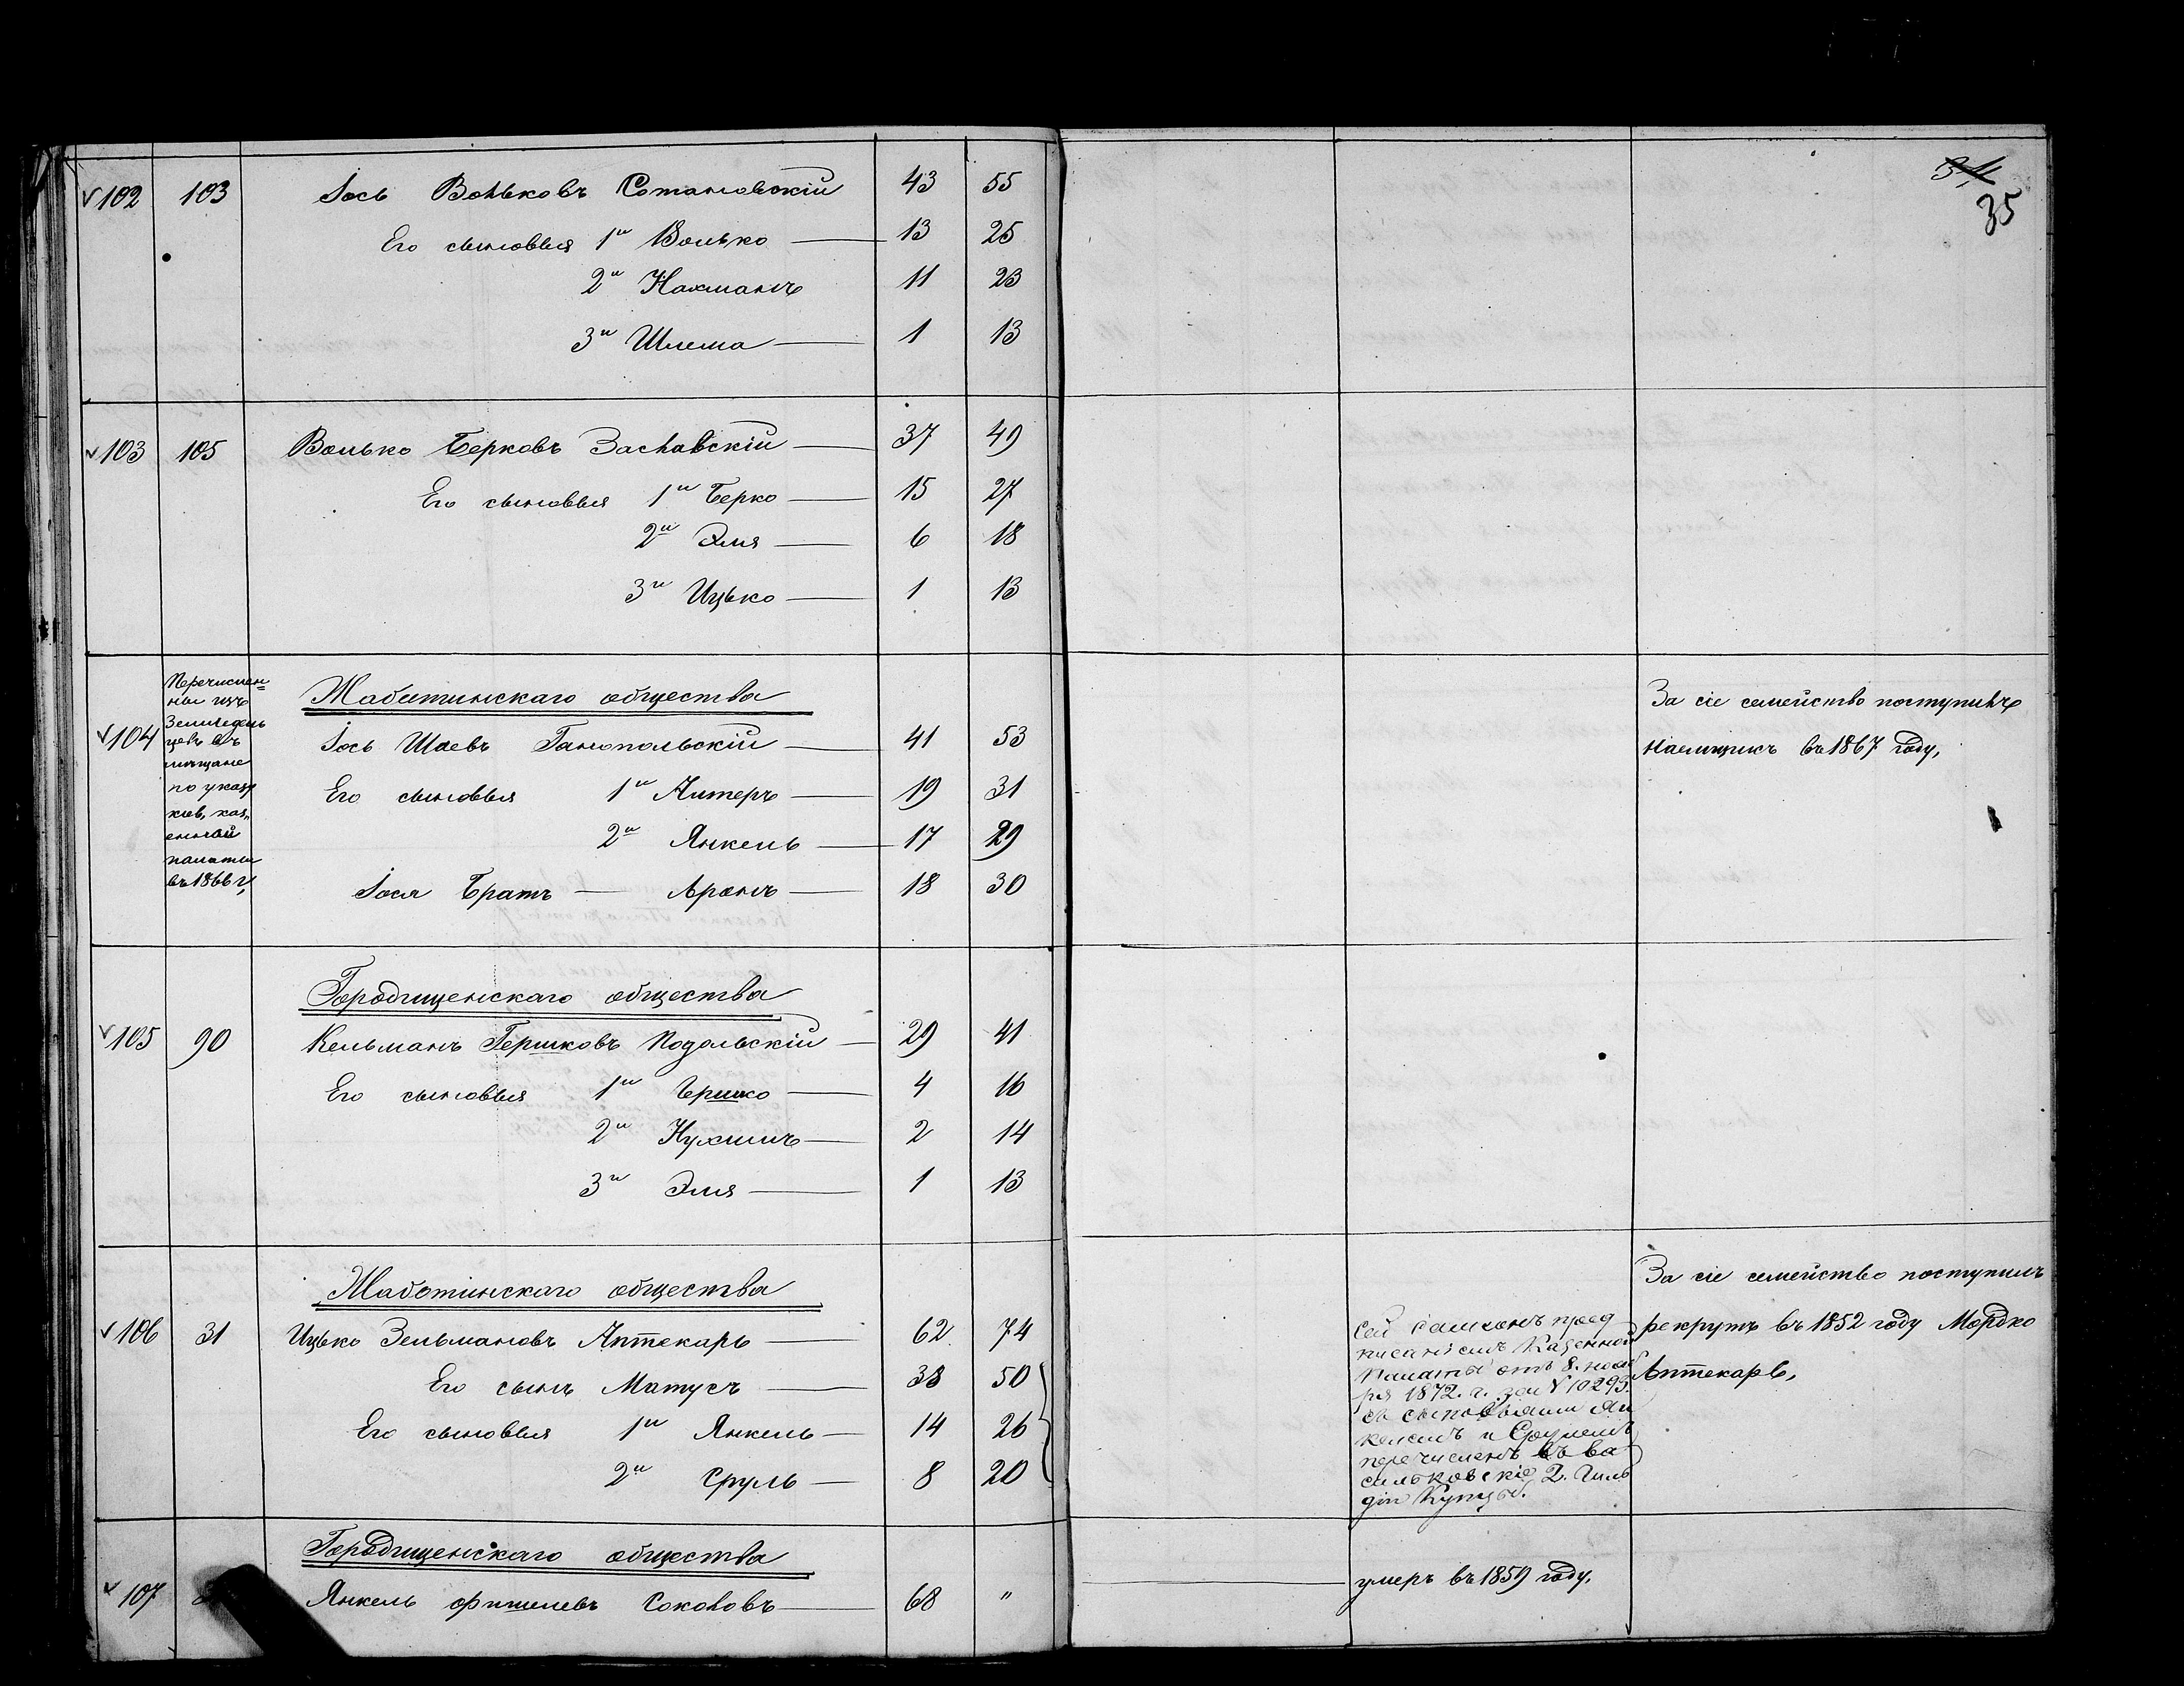 34
35
102 103 Іось Вольковъ Сотановскій 43 55
Его сыновья 1й Волько 13 25
2й Нахманъ 11 23
3й Шлема 1 13
103 105 Волько Берковъ Заславскій 37 49
Его сыновья 1й Берко 15 27
2й Эля 6 18
3й Ицько 1 13
Перечислен=
ны изъ
Земледель
цевъ въ
мещане
по указу
кіев. каз.
енной
палаты
въ 1866 г,
Жаботинскаго общества
За сіе семейство поступилъ
104 Іось Шаевъ Ганопольскій 41 53
наемщикъ въ 1867 году,
Его сыновья 1й Алтеръ 19 31
2й Янкель 17 29
Іося Братъ Аронъ 18 30
Городищенскаго общества
105 90 Кельманъ Гершковъ Подольскій 29 41
Его сыновья 1й Гершко 4 16
2й Нухимъ 2 14
3й Эля 1 13
Жаботинскаго общества
За сіе семейство поступилъ
106 31 Ицько Зельмановъ Аптекарь 62 74
рекрутъ въ 1852 году Мордко
Его сынъ Матусъ 38 50
Аптекарь,
Его сыновья 1й Янкель 14 26
2й Сруль 8 20
Сей пред
писаніемъ Казенной
Палаты отъ 8. нояб
ря 1872. г. за № 10293.
съ сыновьями Ян
келемъ и Срулемъ
перечисленъ въ Ва
сильковскіе 2. Гиль
діи Купцы.
Городищенскаго общества
107 Янкель Фишелевъ Соколовъ 68 "
умеръ въ 1859 году,